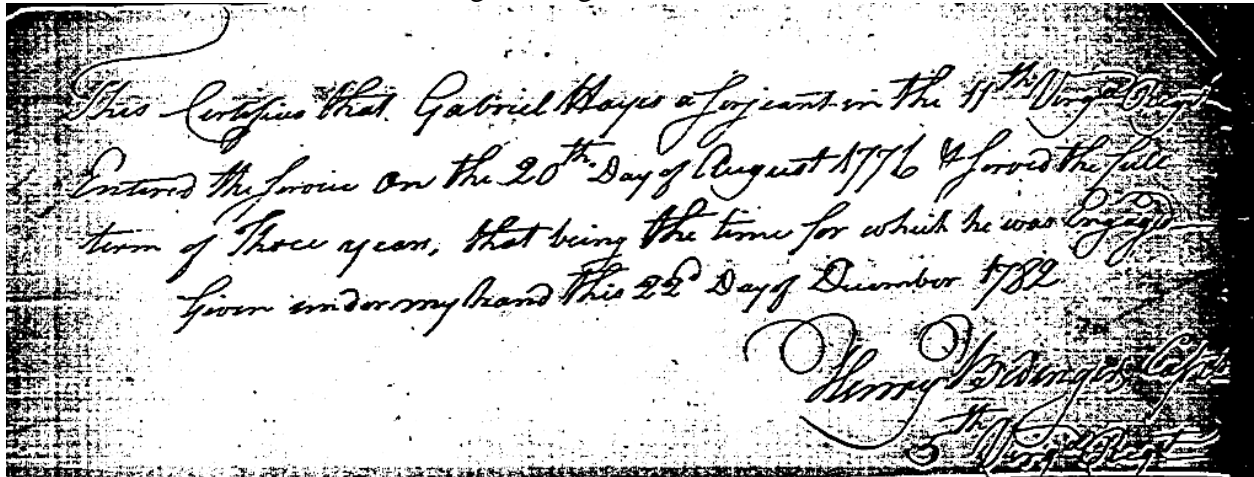 This Certifies that Gabriel Hayes a Serjeant in the 11th Virga Regt
Entered the Service on the 20th Day of August 1776 & Served the full
term of Three years, that being the time for which he was Engaged
Given under my hand this 22d Day of December 1782
Henry Bedinger Capt
5th Virga Regt